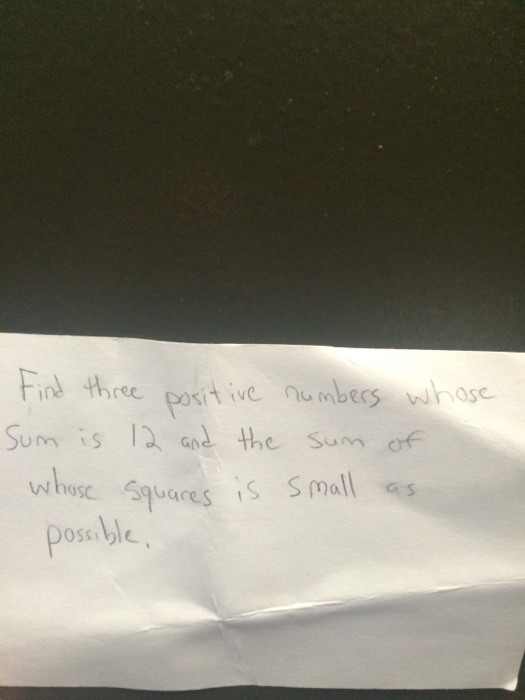 Find three positive numbers whose
Sum is 12 and the sum of
whose squares is small as
possible.